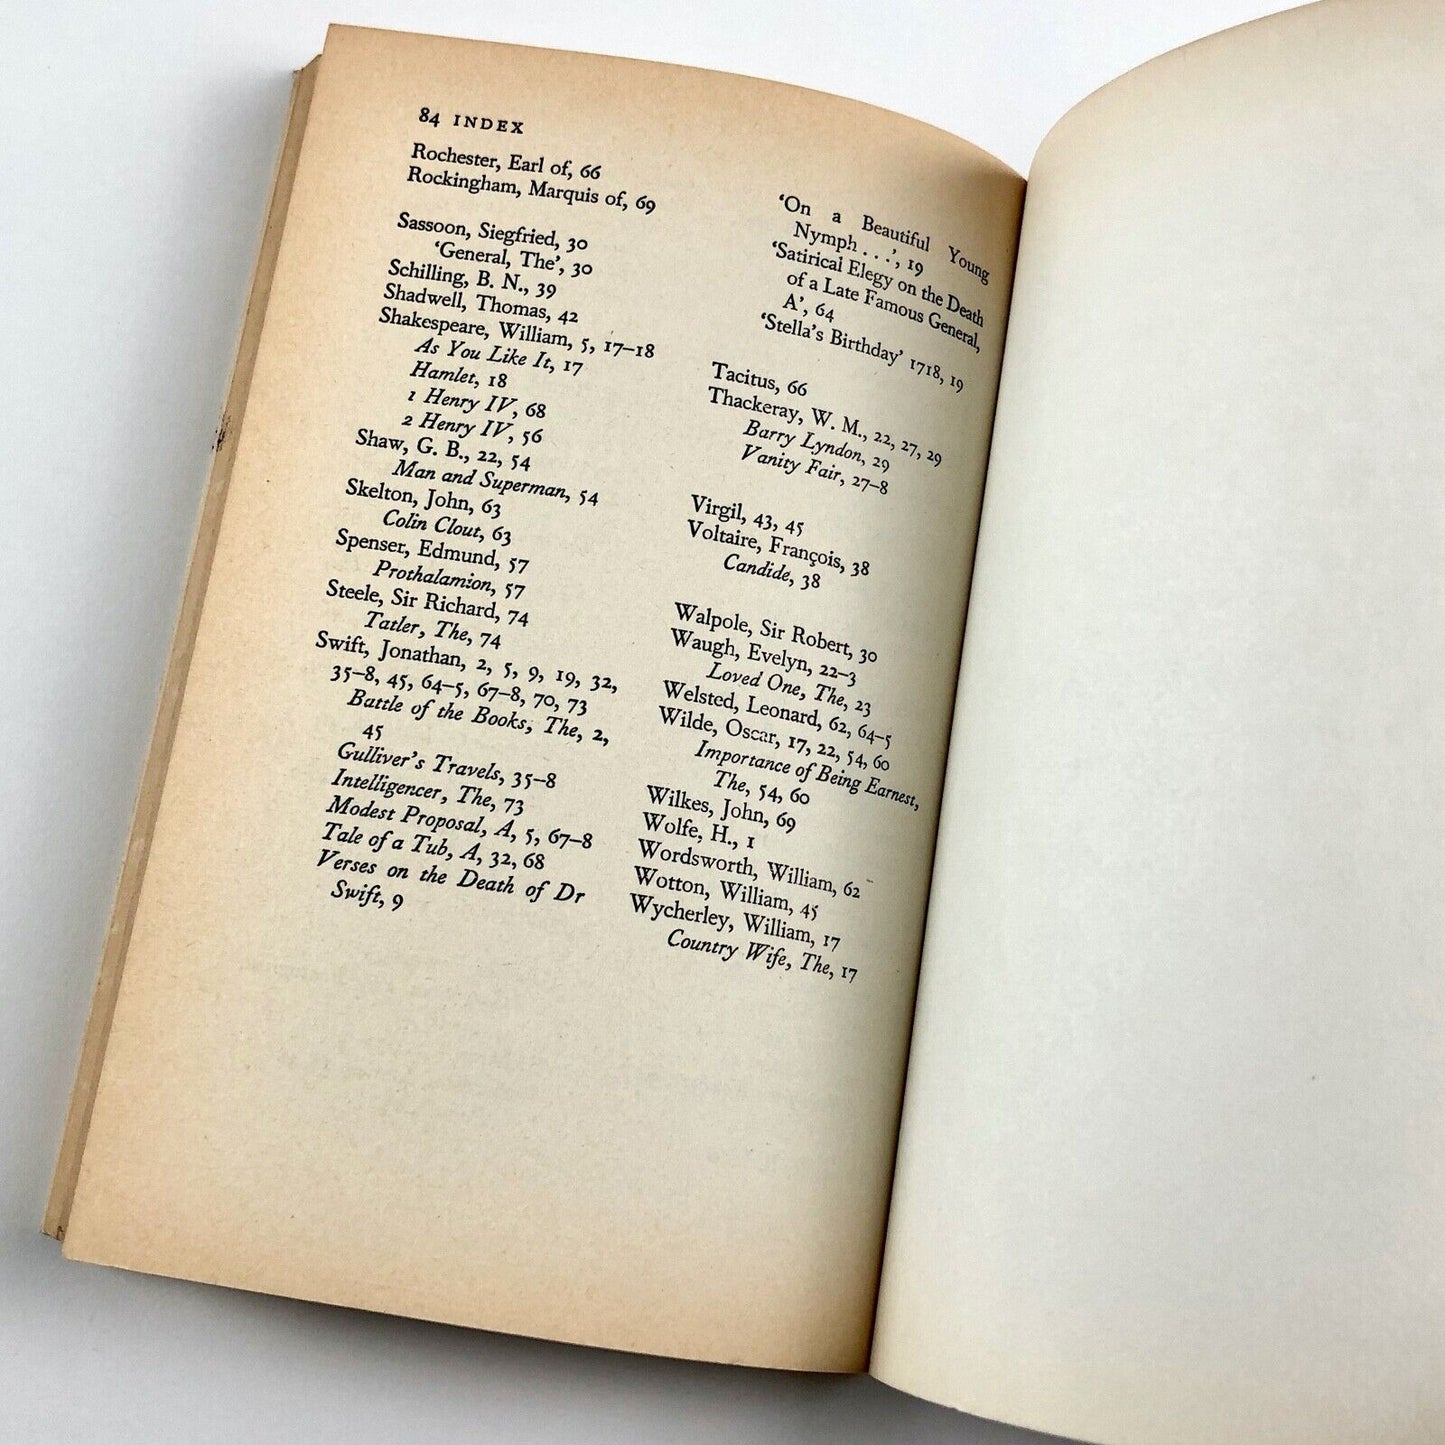 84 INDEX
Rochester, Earl of, 66
Rockingham, Marquis of, 69
Sassoon, Siegfried, 30
‘General, The’, 30
Schilling, B. N., 39
Shadwell, Thomas, 42
Shakespeare, William, 5, 17–18
As You Like It, 17
Hamlet, 18
1 Henry IV, 68
2 Henry IV, 56
Shaw, G. B., 22, 54
Man and Superman, 54
Skelton, John, 63
Colin Clout, 63
Spenser, Edmund, 57
Prothalamion, 57
Steele, Sir Richard, 74
Tatler, The, 74
Swift, Jonathan, 2, 5, 9, 19, 32,
35–8, 45, 64–5, 67–8, 70, 73
Battle of the Books, The, 2,
45
Gulliver’s Travels, 35–8
Intelligencer, The, 73
Modest Proposal, A, 5, 67–8
Tale of a Tub, A, 32, 68
Verses on the Death of Dr
Swift, 9
‘On a Beautiful Young
Nymph . . .’, 19
‘Satirical Elegy on the Death
of a Late Famous General,
A’, 64
‘Stella’s Birthday’ 1718, 19
Tacitus, 66
Thackeray, W. M., 22, 27, 29
Barry Lyndon, 29
Vanity Fair, 27–8
Virgil, 43, 45
Voltaire, François, 38
Candide, 38
Walpole, Sir Robert, 30
Waugh, Evelyn, 22–3
Loved One, The, 23
Welsted, Leonard, 62, 64–5
Wilde, Oscar, 17, 22, 54, 60
Importance of Being Earnest,
The, 54, 60
Wilkes, John, 69
Wolfe, H., 1
Wordsworth, William, 62
Wotton, William, 45
Wycherley, William, 17
Country Wife, The, 17